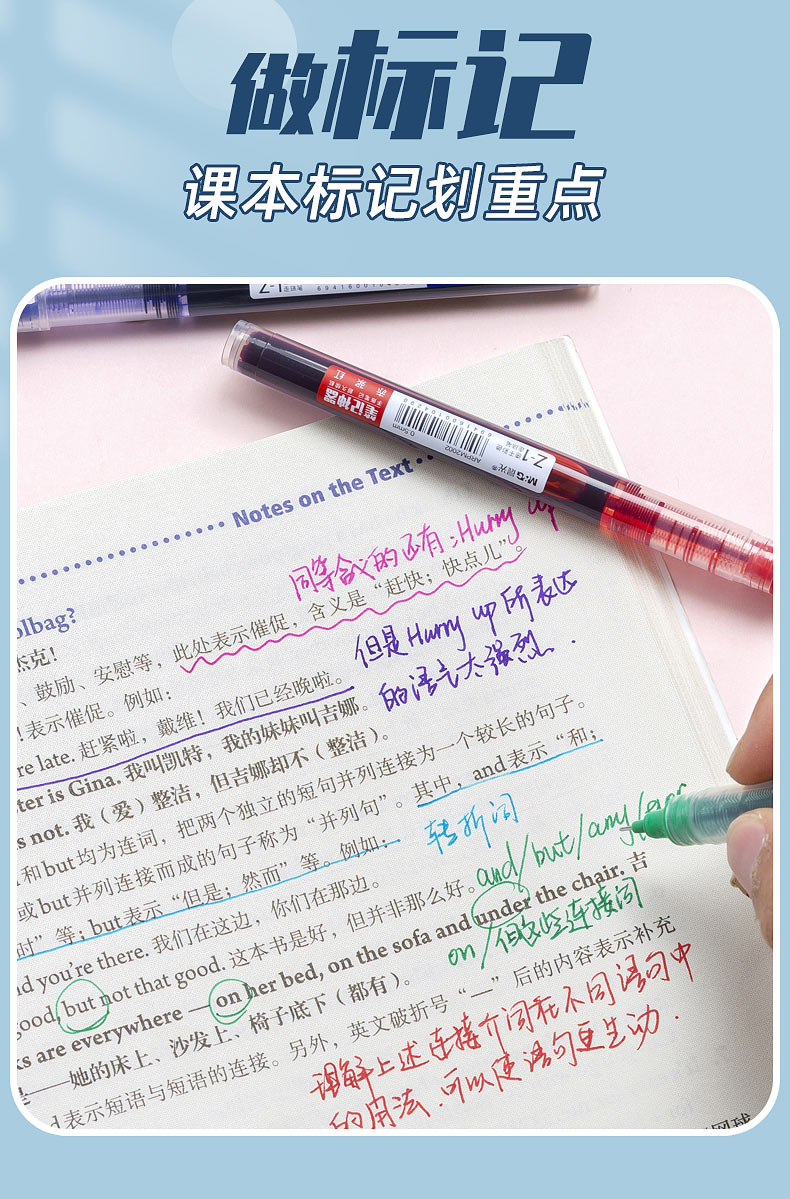 做标记
课本标记划重点
694169001043
Z-1
笔记神器
赤浆红
0.5mm
ARPM2002
M&G晨光
Z-1
Notes on the Text
同等含义的还有：Hurry up
olbag?
杰克！
、鼓励、安慰等，此处表示催促，含义是“赶快；快点儿”。
！表示催促。例如：
但是Hurry up所表达
的语言太强烈.
re late. 赶紧啦，戴维！我们已经晚啦。
ter is Gina. 我叫凯特，我的妹妹叫吉娜。
s not. 我（爱）整洁，但吉娜却不（整洁）。
和but均为连词，把两个独立的短句并列连接为一个较长的句子。
或but并列连接而成的句子称为“并列句”。其中，and表示“和；
时”等；but表示“但是；然而”等。例如：
转折词
and/but/any/
d you're there. 我们在这边，你们在那边。
good, but not that good. 这本书是好，但并非那么好。
on/但这些连接词
ks are everywhere — on her bed, on the sofa and under the chair. 吉
——她的床上、沙发上、椅子底下（都有）。
d表示短语与短语的连接。另外，英文破折号“—”后的内容表示补充
理解上述连接介词在不同语句中
的用法.可以使语句更生动.
网球